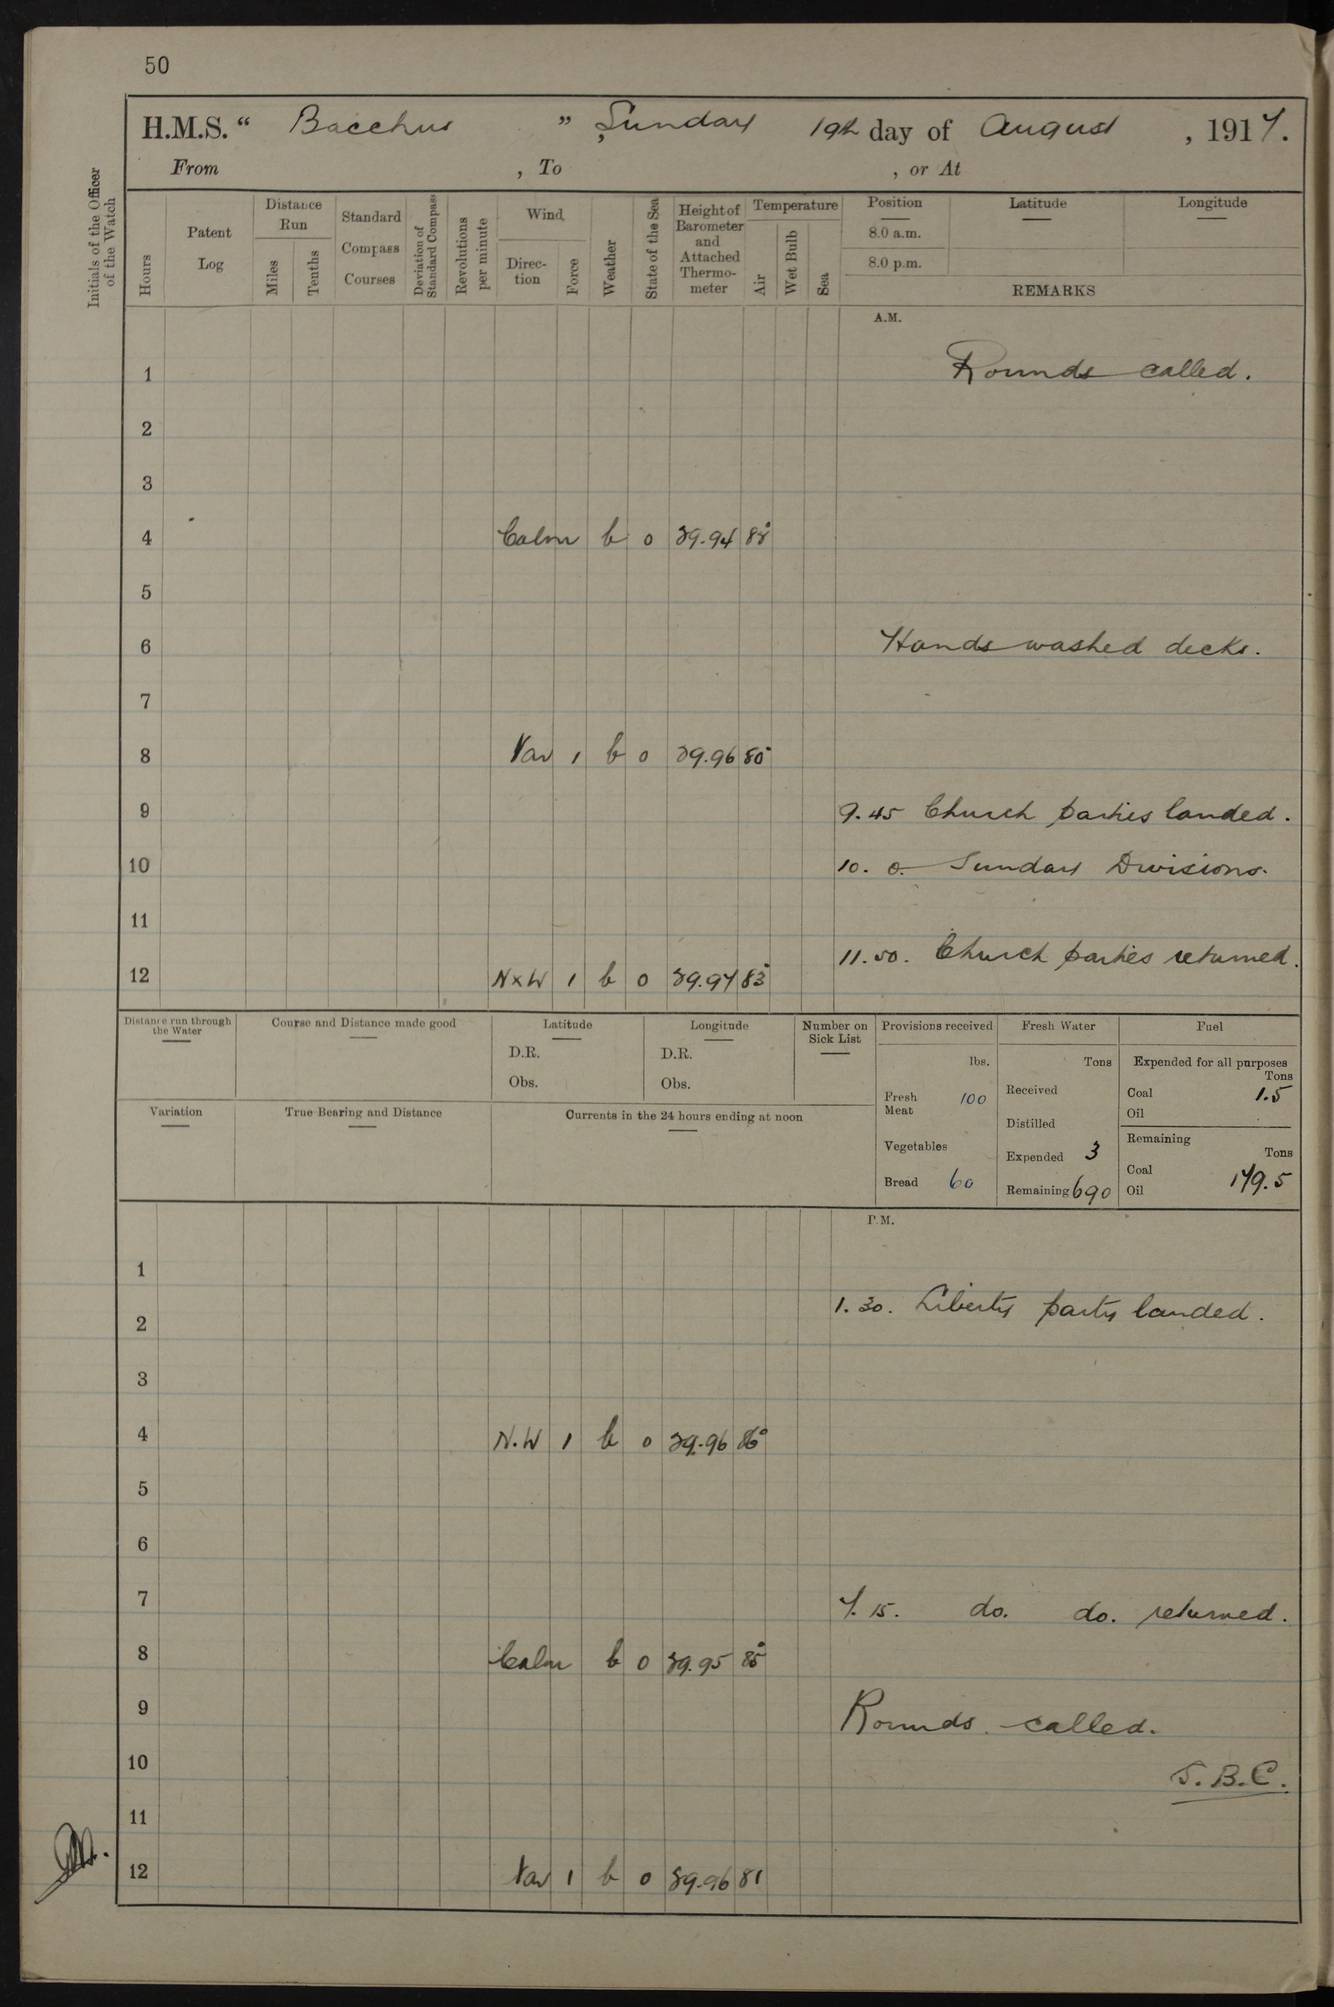 50
H.M.S. “ Bacchus ”, Sunday 19th day of August , 1917.
From , To , or At
Initials of the Officer of the Watch
Hours
Patent Log
Distance Run
Miles
Tenths
Standard Compass Courses
Deviation of Standard Compass
Revolutions per minute
Wind
Direction
Force
Weather
State of the Sea
Height of Barometer and Attached Thermometer
Temperature
Air
Wet Bulb
Sea
Position
8.0 a.m.
8.0 p.m.
Latitude
Longitude
REMARKS
A.M.
1 Rounds called.
2
3
4 Calm b 0 29.94
5
6 Hands washed decks.
7
8 Var 1 b 0 29.96 80°
9 9.45 Church parties landed.
10 10. 0. Sunday Divisions.
11
11.50. Church parties returned.
12 N x W 1 b 0 29.97 83°
Distance run through the Water
Course and Distance made good
Latitude
D.R.
Obs.
Longitude
D.R.
Obs.
Number on Sick List
Provisions received
lbs.
Fresh Meat 100
Vegetables
Bread 60
Fresh Water
Tons
Received
Distilled
Expended 3
Remaining 690
Fuel
Expended for all purposes
Tons
Coal 1.5
Oil
Remaining
Tons
Coal 179.5
Oil
Variation
True Bearing and Distance
Currents in the 24 hours ending at noon
P.M.
1
1.30. Liberty party landed.
2
3
4 N.W 1 b 0 29.96 86°
5
6
7 7.15. do. do. returned.
8 Calm b 0 29.95 85°
9 Rounds called.
10 S.B.C.
11
12 Var 1 b 0 29.96 81